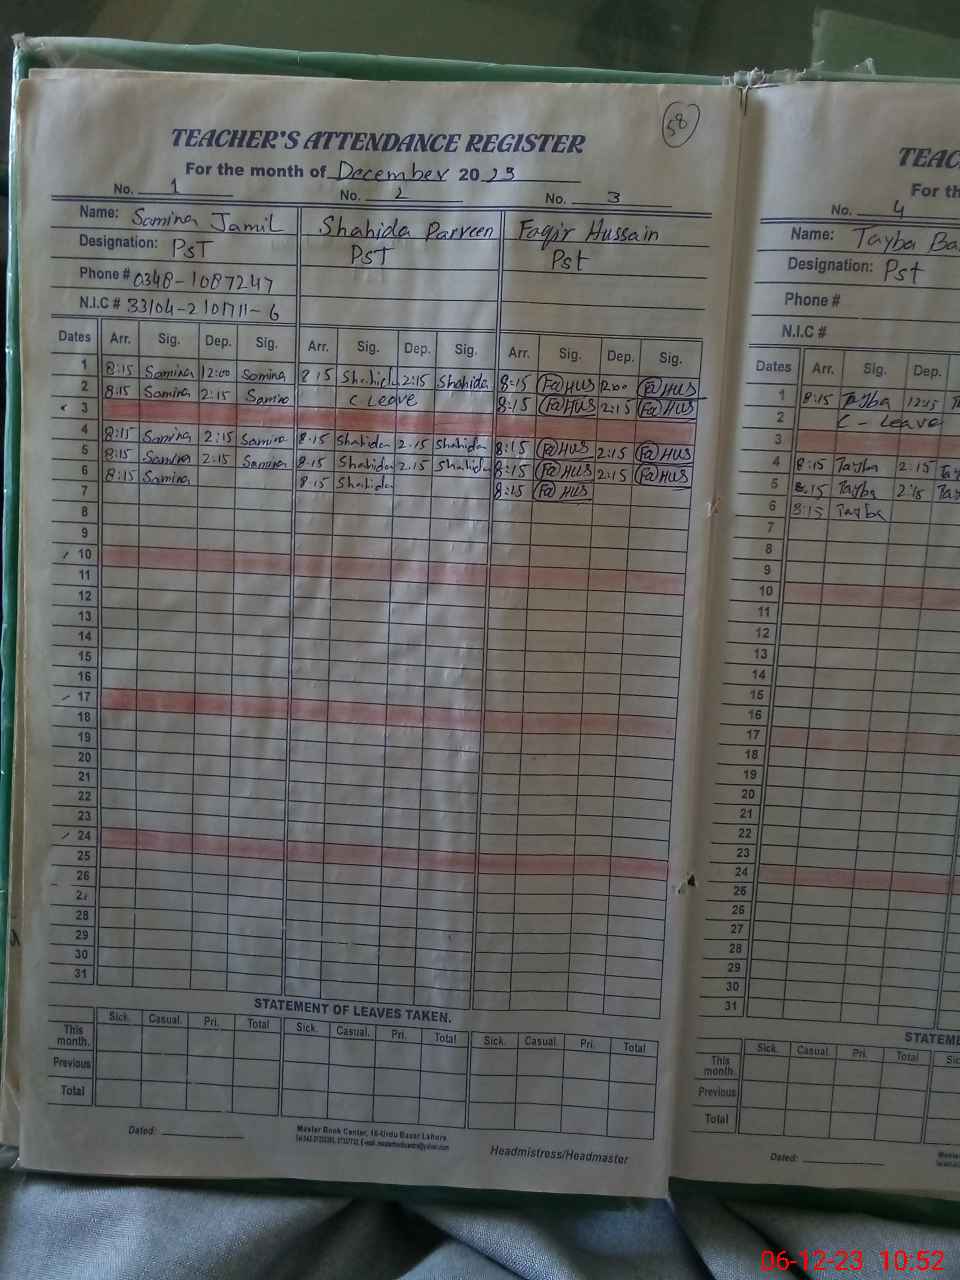 58
TEACHER'S ATTENDANCE REGISTER
For the month of December 2023
No. 1 No. 2 No. 3
Name: Samina Jamil Shahida Parveen Faqir Hussain
Designation: PST PST Pst
Phone # 0348-1087247
N.I.C # 33104-2101711-6
Dates Arr. Sig. Dep. Sig. Arr. Sig. Dep. Sig. Arr. Sig. Dep. Sig.
1 8:15 Samina 12:00 Samina 8:15 Shahida 2:15 Shahida 8:15 Fa HUS 12:00 Fa HUS
2 8:15 Samina 2:15 Samina C Leave 8:15 Fa HUS 2:15 Fa HUS
3
4 8:15 Samina 2:15 Samina 8:15 Shahida 2:15 Shahida 8:15 Fa HUS 2:15 Fa HUS
5 8:15 Samina 2:15 Samina 8:15 Shahida 2:15 Shahida 8:15 Fa HUS 2:15 Fa HUS
6 8:15 Samina 8:15 Shahida 8:15 Fa HUS
7
8
9
10
11
12
13
14
15
16
17
18
19
20
21
22
23
24
25
26
28
29
30
31
STATEMENT OF LEAVES TAKEN.
Sick. Casual. Pri. Total Sick. Casual. Pri. Total Sick. Casual. Pri. Total
This month.
Previous
Total
Dated:
Master Book Center, 16-Urdu Bazar Lahore.
Headmistress/Headmaster
TEAC
For th
No. 4
Name: Tayba Ba
Designation: Pst
Phone #
N.I.C #
Dates Arr. Sig. Dep.
1 8:15 Tayba 12:15
2 C - Leave
3
4 8:15 Tayba 2:15 Tay
5 8:15 Tayba 2:15 Tay
6 8:15 Tayba
7
8
9
10
11
12
13
14
15
16
17
18
19
20
21
22
23
24
25
26
27
28
29
30
31
STATEME
Sick. Casual. Pri. Total Sic
This month.
Previous
Total
Dated:
06-12-23 10:52